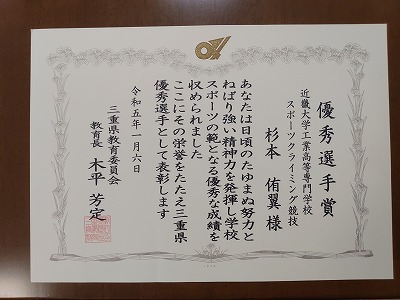 優秀選手賞
近畿大学工業高等専門学校
スポーツクライミング競技
杉本 侑翼 様
あなたは日頃のたゆまぬ努力と
ねばり強い精神力を発揮し学校
スポーツの範となる優秀な成績を
収められました
ここにその栄誉をたたえ三重県
優秀選手として表彰します
令和五年一月六日
三重県教育委員会
教育長 木平 芳定